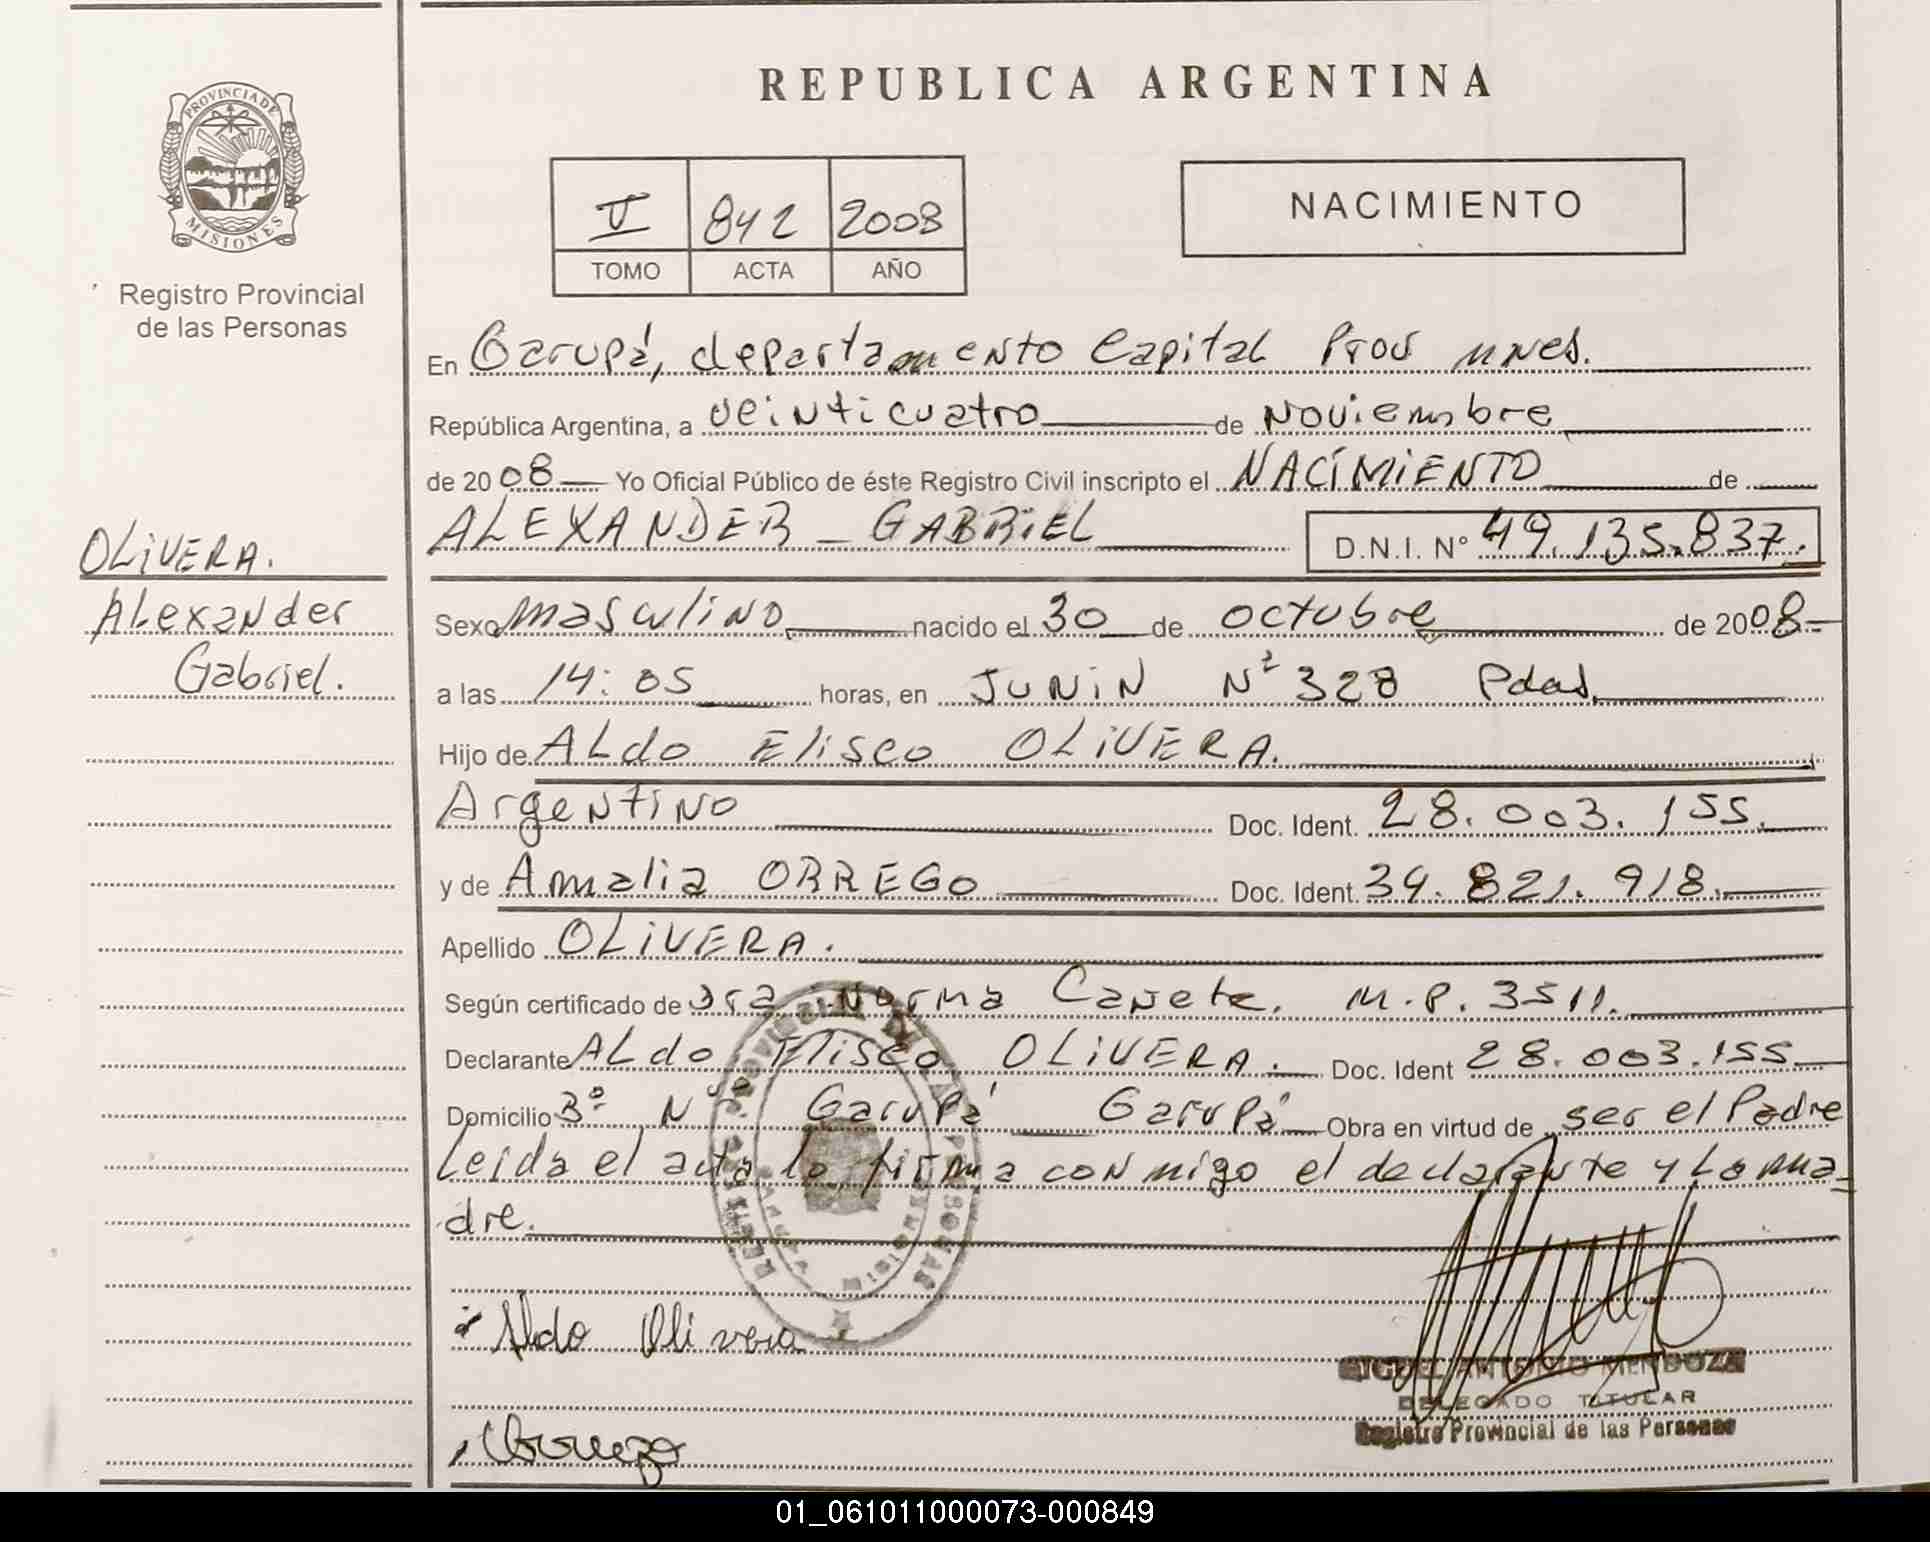 PROVINCIA DE
MISIONES
Registro Provincial
de las Personas
OLIVERA.
Alexander
Gabriel.
REPUBLICA ARGENTINA
V 842 2008
TOMO ACTA AÑO
NACIMIENTO
En Garupá, departamento Capital Prov mnes.
República Argentina, a veinticuatro de Noviembre
de 2008 Yo Oficial Público de éste Registro Civil inscripto el NACIMIENTO de
ALEXANDER - GABRIEL D.N.I. Nº 49.135.837.
Sexo masculino nacido el 30 de octubre de 2008
a las 14:05 horas, en JUNIN Nº 328 Pdas.
Hijo de ALdo Eliseo OLIVERA.
Argentino Doc. Ident. 28.003.155.
y de Amalia ORREGO Doc. Ident. 34.821.918.
Apellido OLIVERA.
Según certificado de Dra Norma Cañete. M.P. 3511.
Declarante ALdo Eliseo OLIVERA. Doc. Ident 28.003.155
Domicilio Bº Nº Garupá Garupá Obra en virtud de ser el Padre
Leida el acta lo firma conmigo el declarante y La ma-
dre.
Aldo Olivera
MIGUEL ANTONIO MENDOZA
DELEGADO TITULAR
Registro Provincial de las Personas
01_061011000073-000849